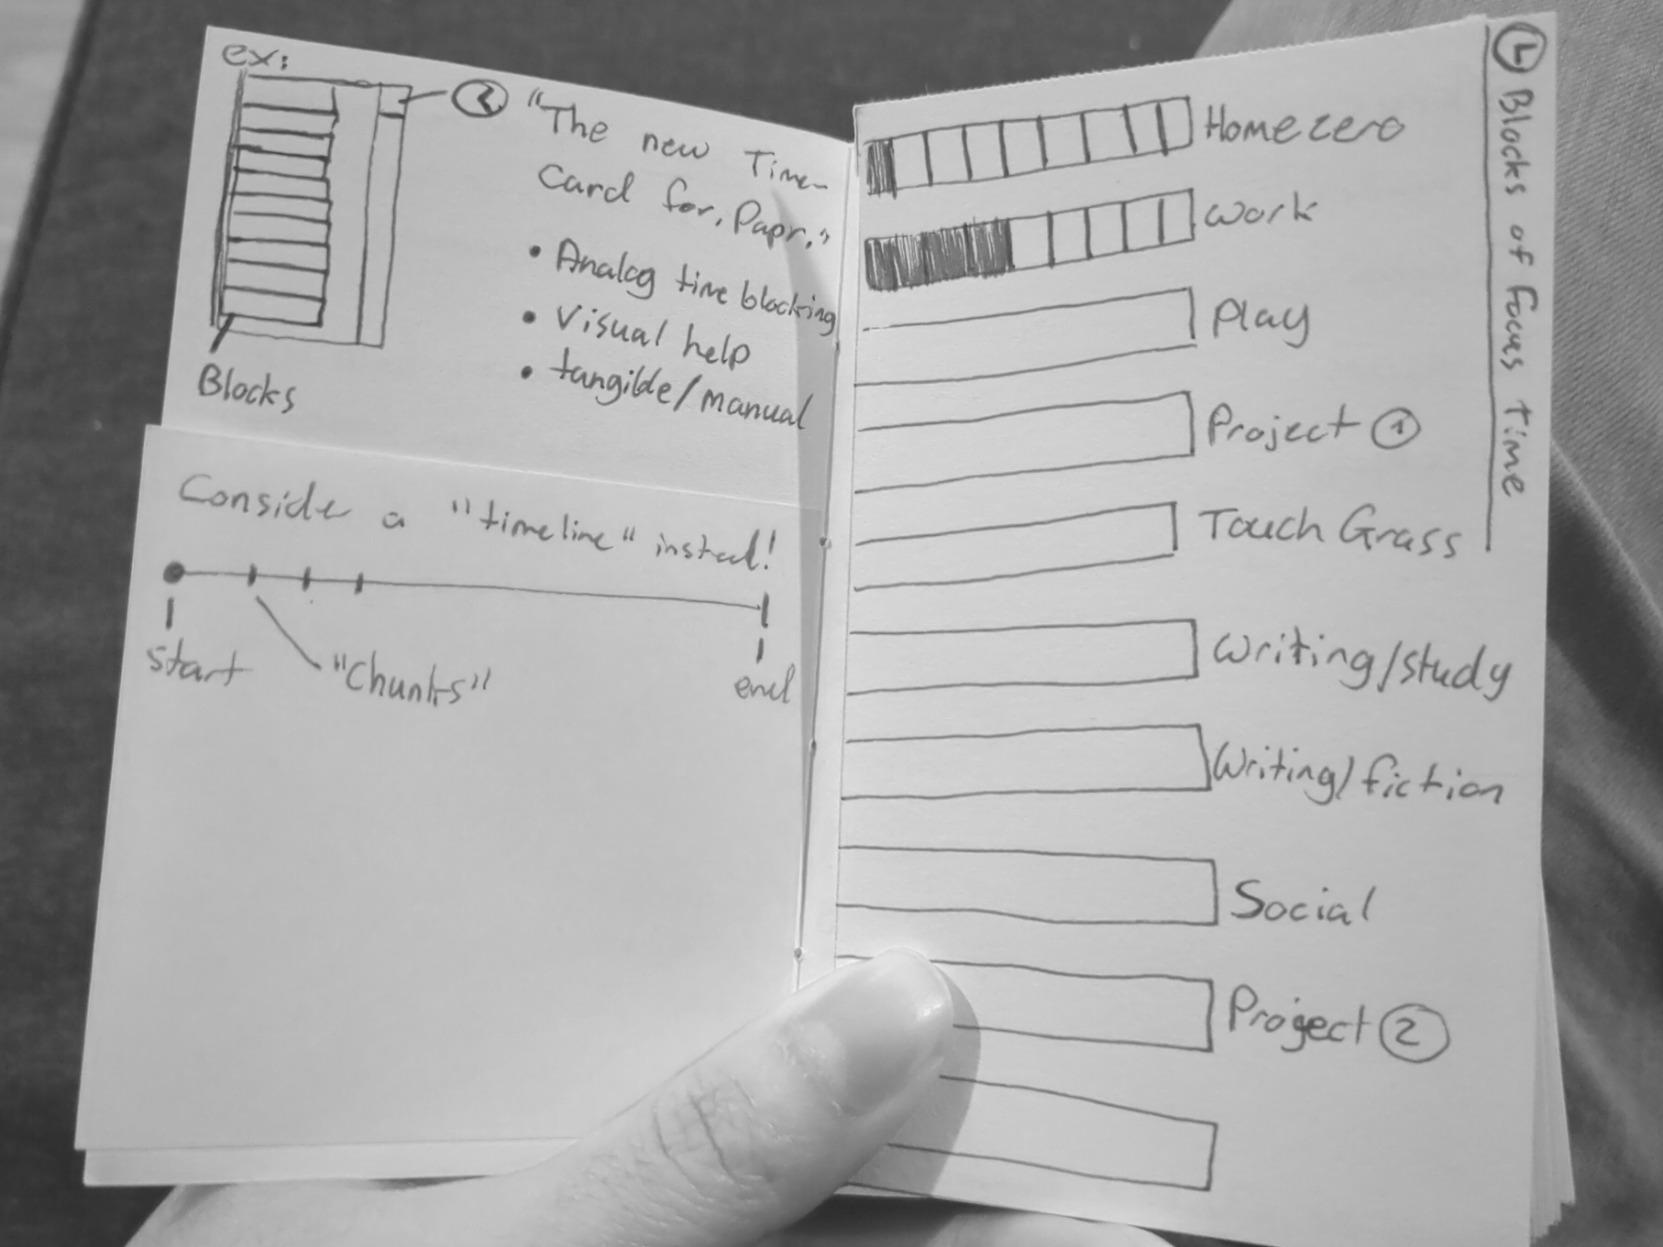 ex:
"The new Time-
Card for, Papr."
• Analog time blocking
• Visual help
• tangible/manual
Blocks
Consider a "timeline" instead!
start
"Chunks"
end
Blocks of focus time
Homezero
Work
Play
Project ①
Touch Grass
Writing/study
Writing/fiction
Social
Project ②